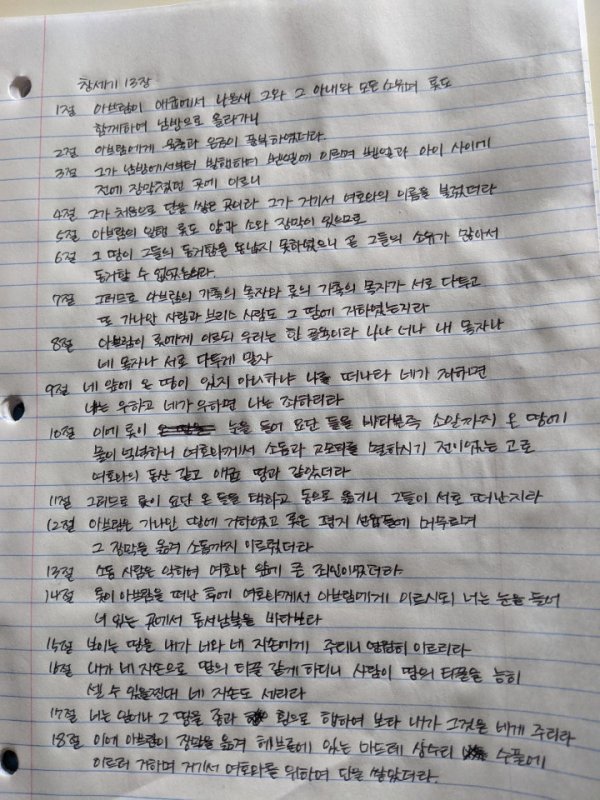 창세기 13장
1절 아브람이 애굽에서 나올새 그와 그 아내와 모든 소유며 롯도
함께하여 남방으로 올라가니
2절 아브람에게 육축과 은금이 풍부하였더라.
3절 그가 남방에서부터 발행하여 벧엘에 이르며 벧엘과 아이 사이에
전에 장막쳤던 곳에 이르니
4절 그가 처음으로 단을 쌓은 곳이라 그가 거기서 여호와의 이름을 불렀더라
5절 아브람의 일행 롯도 양과 소와 장막이 있으므로
6절 그 땅이 그들의 동거함을 용납지 못하였으니 곧 그들의 소유가 많아서
동거할 수 없었느니라.
7절 그러므로 아브람의 가축의 목자와 롯의 가축의 목자가 서로 다투고
또 가나안 사람과 브리스 사람도 그 땅에 거하였는지라
8절 아브람이 롯에게 이르되 우리는 한 골육이라 나나 너나 내 목자나
네 목자나 서로 다투게 말자
9절 네 앞에 온 땅이 있지 아니하냐 나를 떠나라 네가 좌하면
나는 우하고 네가 우하면 나는 좌하리라
10절 이에 롯이 눈을 들어 요단 들을 바라본즉 소알까지 온 땅에
물이 넉넉하니 여호와께서 소돔과 고모라를 멸하시기 전이었는 고로
여호와의 동산 같고 애굽 땅과 같았더라
11절 그러므로 롯이 요단 온 들을 택하고 동으로 옮기니 그들이 서로 떠난지라
12절 아브람은 가나안 땅에 거하였고 롯은 평지 성읍들에 머무르며
그 장막을 옮겨 소돔까지 이르렀더라
13절 소돔 사람은 악하여 여호와 앞에 큰 죄인이었더라.
14절 롯이 아브람을 떠난 후에 여호와께서 아브람에게 이르시되 너는 눈을 들어
너 있는 곳에서 동서남북을 바라보라
15절 보이는 땅을 내가 너와 네 자손에게 주리니 영원히 이르리라
16절 내가 네 자손으로 땅의 티끌 같게 하리니 사람이 땅의 티끌을 능히
셀 수 있을찐대 네 자손도 세리라
17절 너는 일어나 그 땅을 종과 횡으로 행하여 보라 내가 그것을 네게 주리라
18절 이에 아브람이 장막을 옮겨 헤브론에 있는 마므레 상수리 수풀에
이르러 거하며 거기서 여호와를 위하여 단을 쌓았더라.